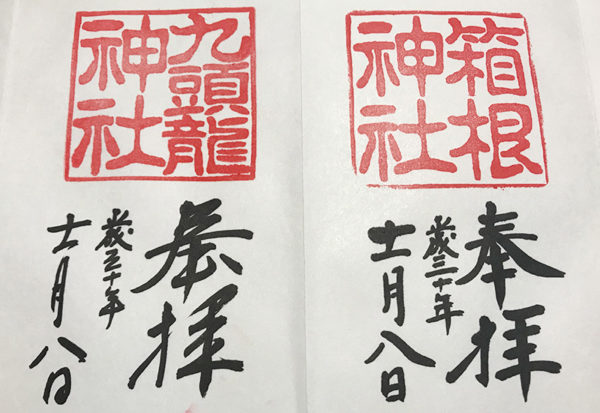 箱根
神社
奉拝
歳三十年
十一月八日
九頭龍
神社
奉拝
歳三十年
十一月八日